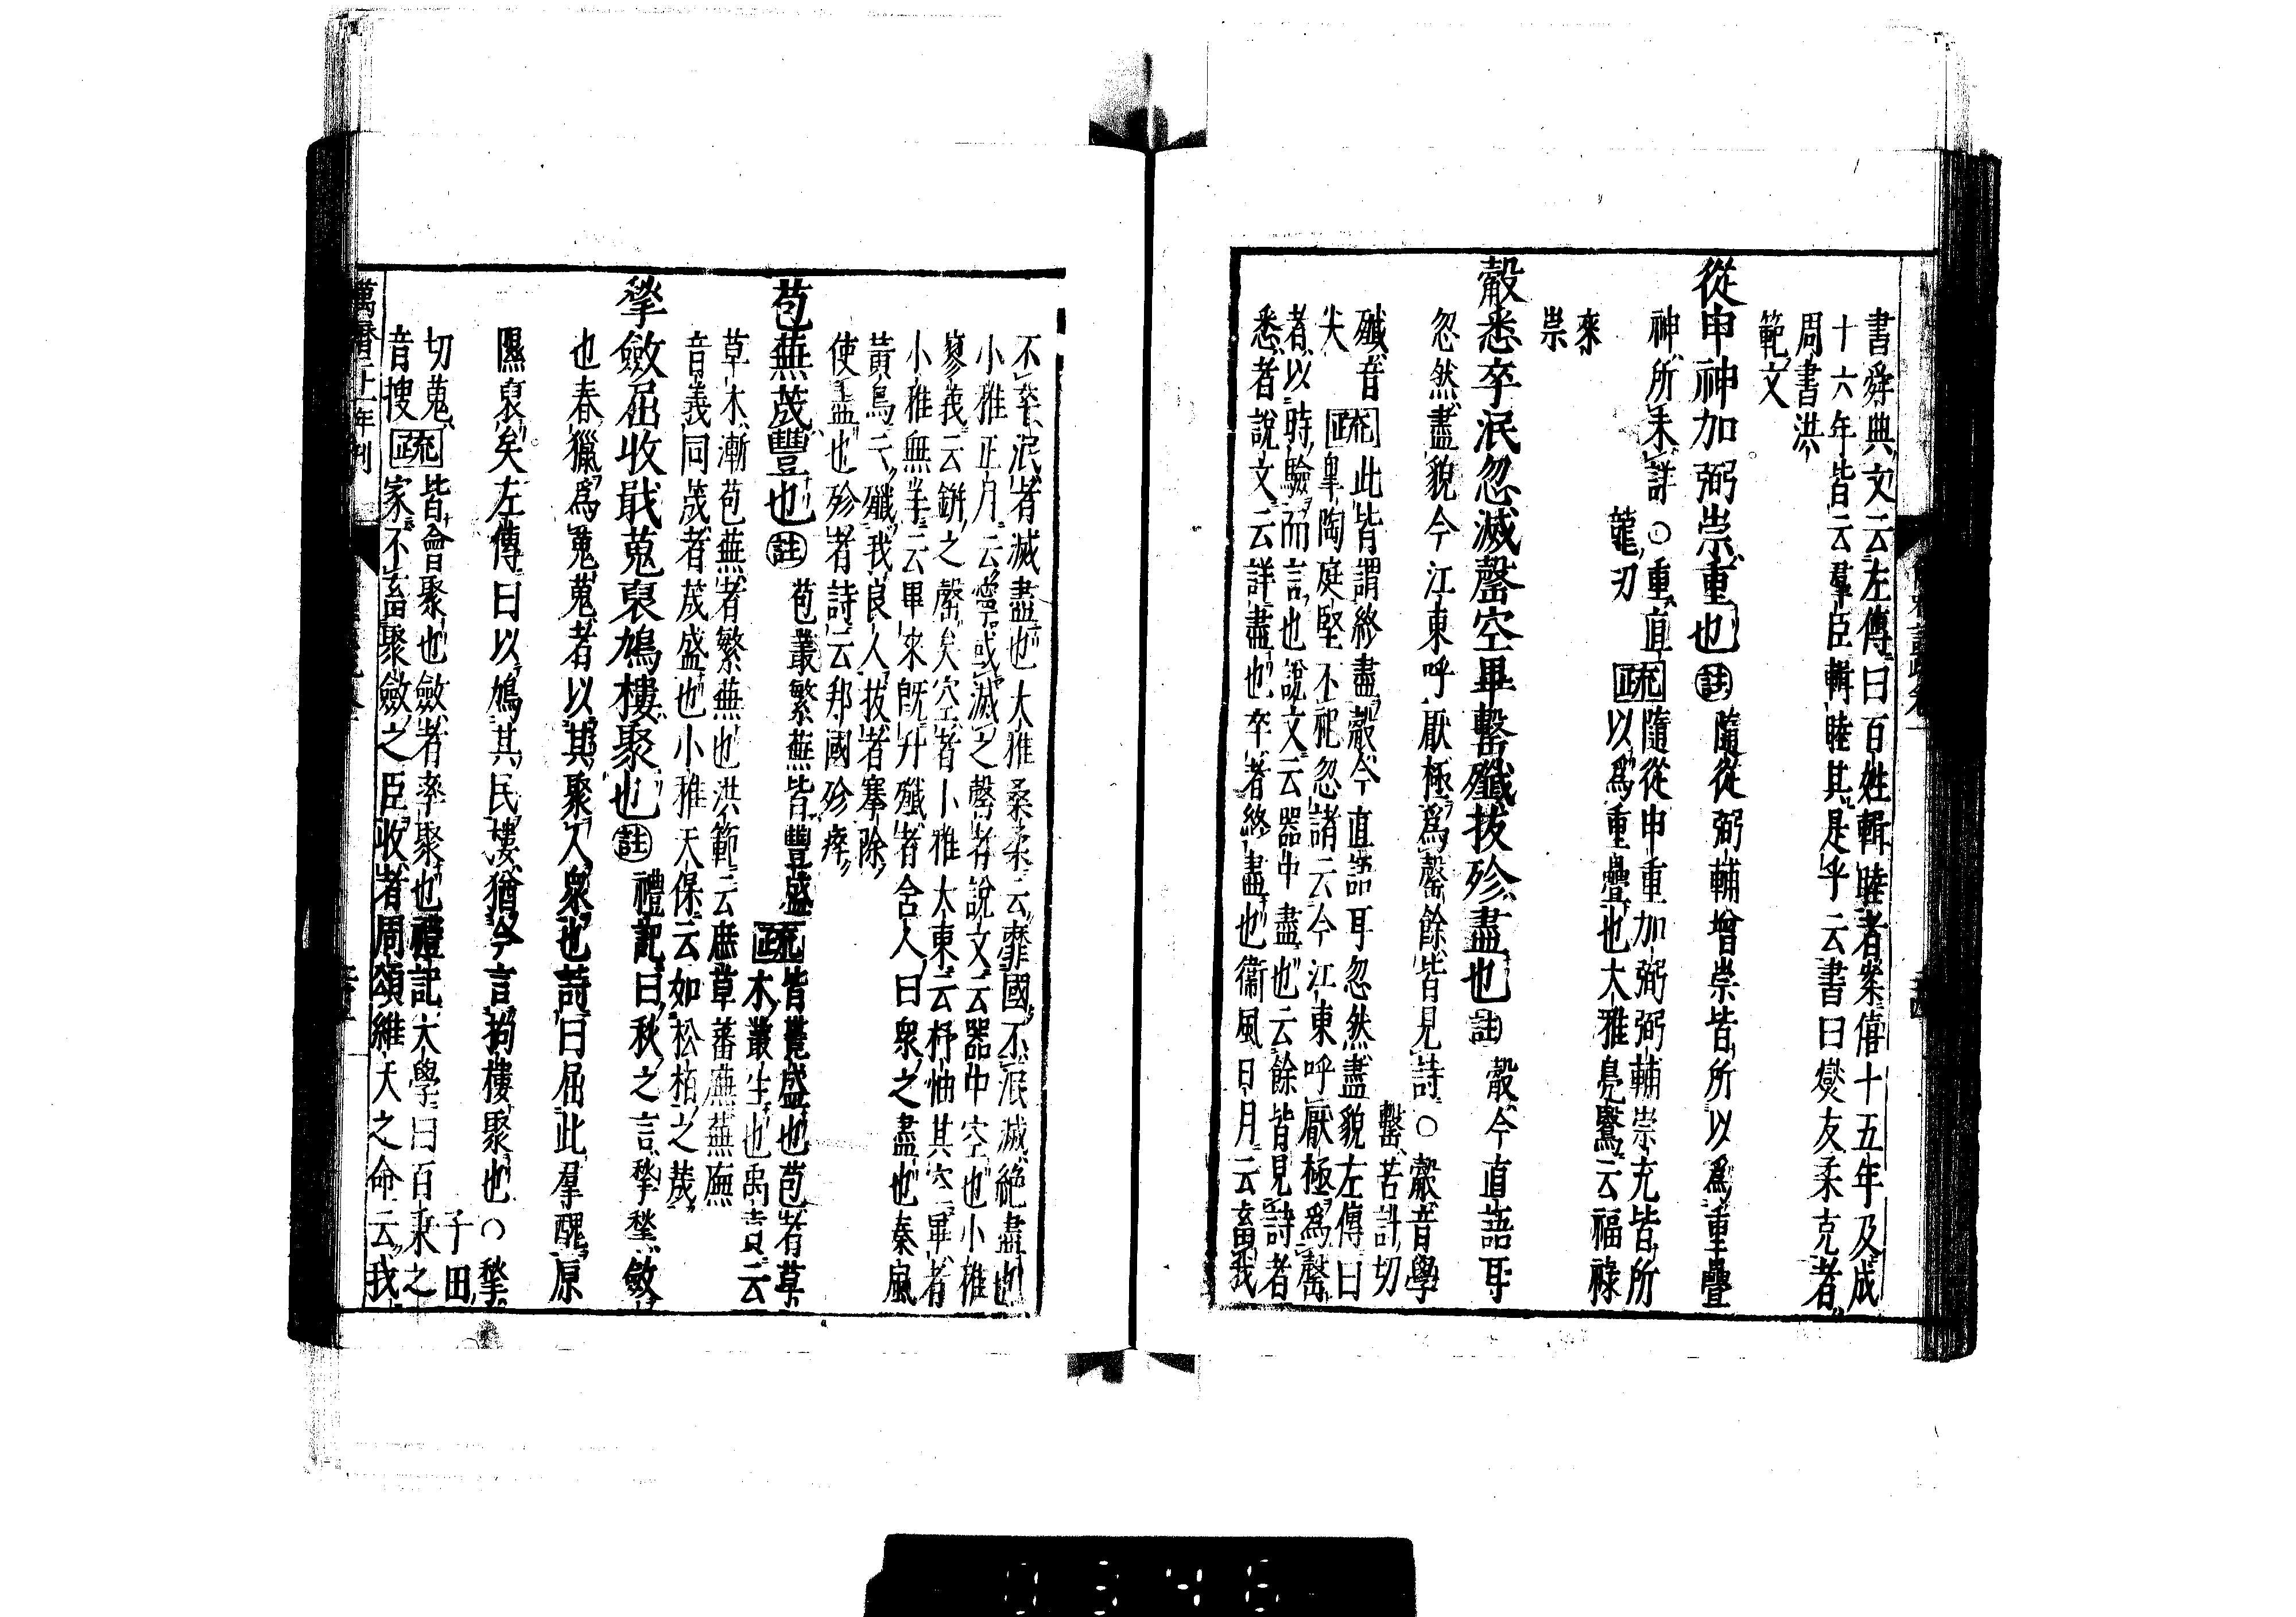 書舜典文云左傳曰百姓輯睦者案僖十五年及成
十六年皆云羣臣輯睦其是乎云書曰燮友柔克者
周書洪
範文
從申神加弼崇重也註隨從弼輔增崇皆所以爲重疊
神所未詳○重直
龍刃
疏隨從申重加弼弼輔崇充皆所
以爲重疊也大雅鳧鷖云福祿
來
崇
觳悉卒泯忽滅罄空畢罊殲拔殄盡也註觳今直語耳
忽然盡貌今江東呼厭極爲罄餘皆見詩○觳音學
罊苦計切
殲音
尖
疏此皆謂終盡觳今直語耳忽然盡貌左傳曰
皐陶庭堅不祀忽諸云今江東呼厭極爲罄
者以時驗而言也說文云器中盡也云餘皆見詩者
悉者說文云詳盡也卒者終盡也衞風日月云畜我
不卒泯者滅盡也大雅桑柔云靡國不泯滅絕盡也
小雅正月云寧或滅之罄者說文云器中空也小雅
蓼莪云缾之罄矣空者小雅大東云杼柚其空畢者
小雅無羊云畢來旣升殲者舍人曰衆之盡也秦風
黃鳥云殲我良人拔者搴除
使盡也殄者詩云邦國殄瘁
苞蕪茂豐也註苞叢繁蕪皆豐盛
疏皆豐盛也苞者草
木叢生也禹貢云
草木漸苞蕪者繁蕪也洪範云庶草蕃廡蕪廡
音義同茂者茂盛也小雅天保云如松栢之茂
揫斂屈收戢蒐裒鳩樓聚也註禮記曰秋之言揫揫斂
也春獵爲蒐蒐者以其聚人衆也詩曰屈此羣醜原
隰裒矣左傳曰以鳩其民樓猶今言拘樓聚也○揫
子田
切蒐
音搜
疏皆會聚也斂者率聚也禮記大學曰百乘之
家不畜聚斂之臣收者周頌維天之命云我
萬曆二十一年刊